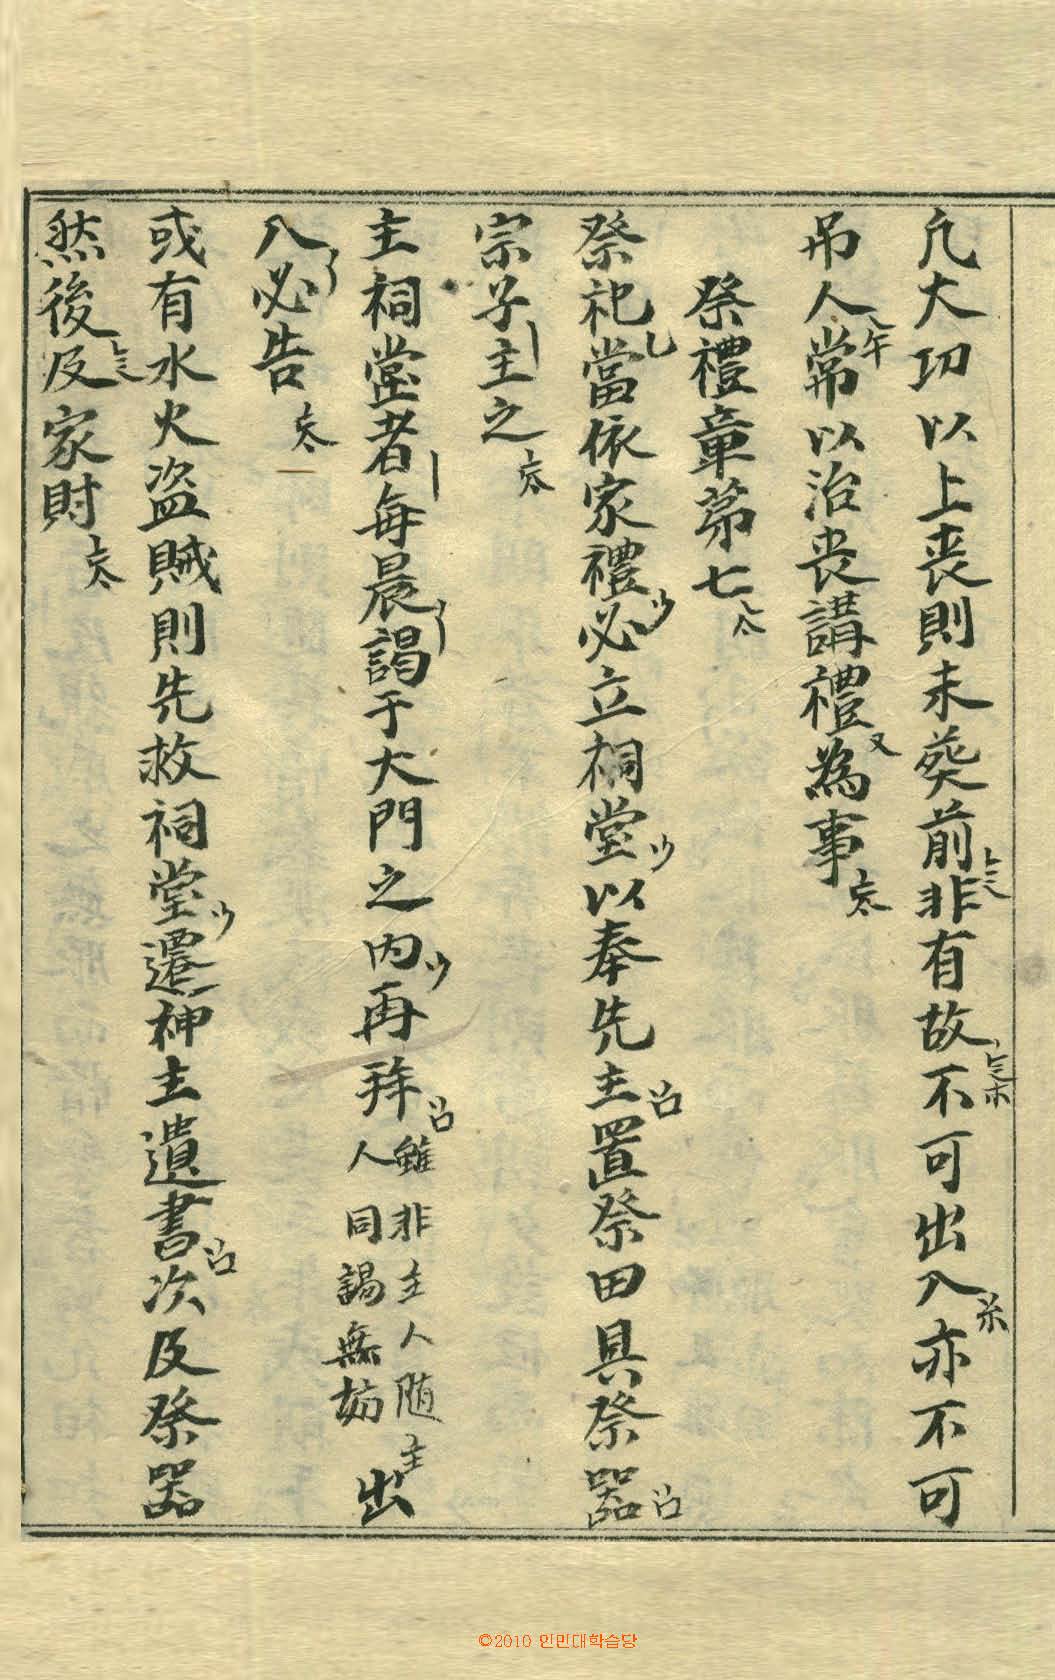 凡大功以上丧則未葬前非有故不可出入亦不可
吊人常以治丧講禮為事
祭禮章第七
祭祀當依家禮必立祠堂以奉先主置祭田具祭器
宗子主之
主祠堂者每晨謁于大門之内再拜雖非主人随主人同謁無妨出
入必告
或有水火盗賊則先救祠堂遷神主遺書次及祭器
然後及家財
©2010 인민대학습당